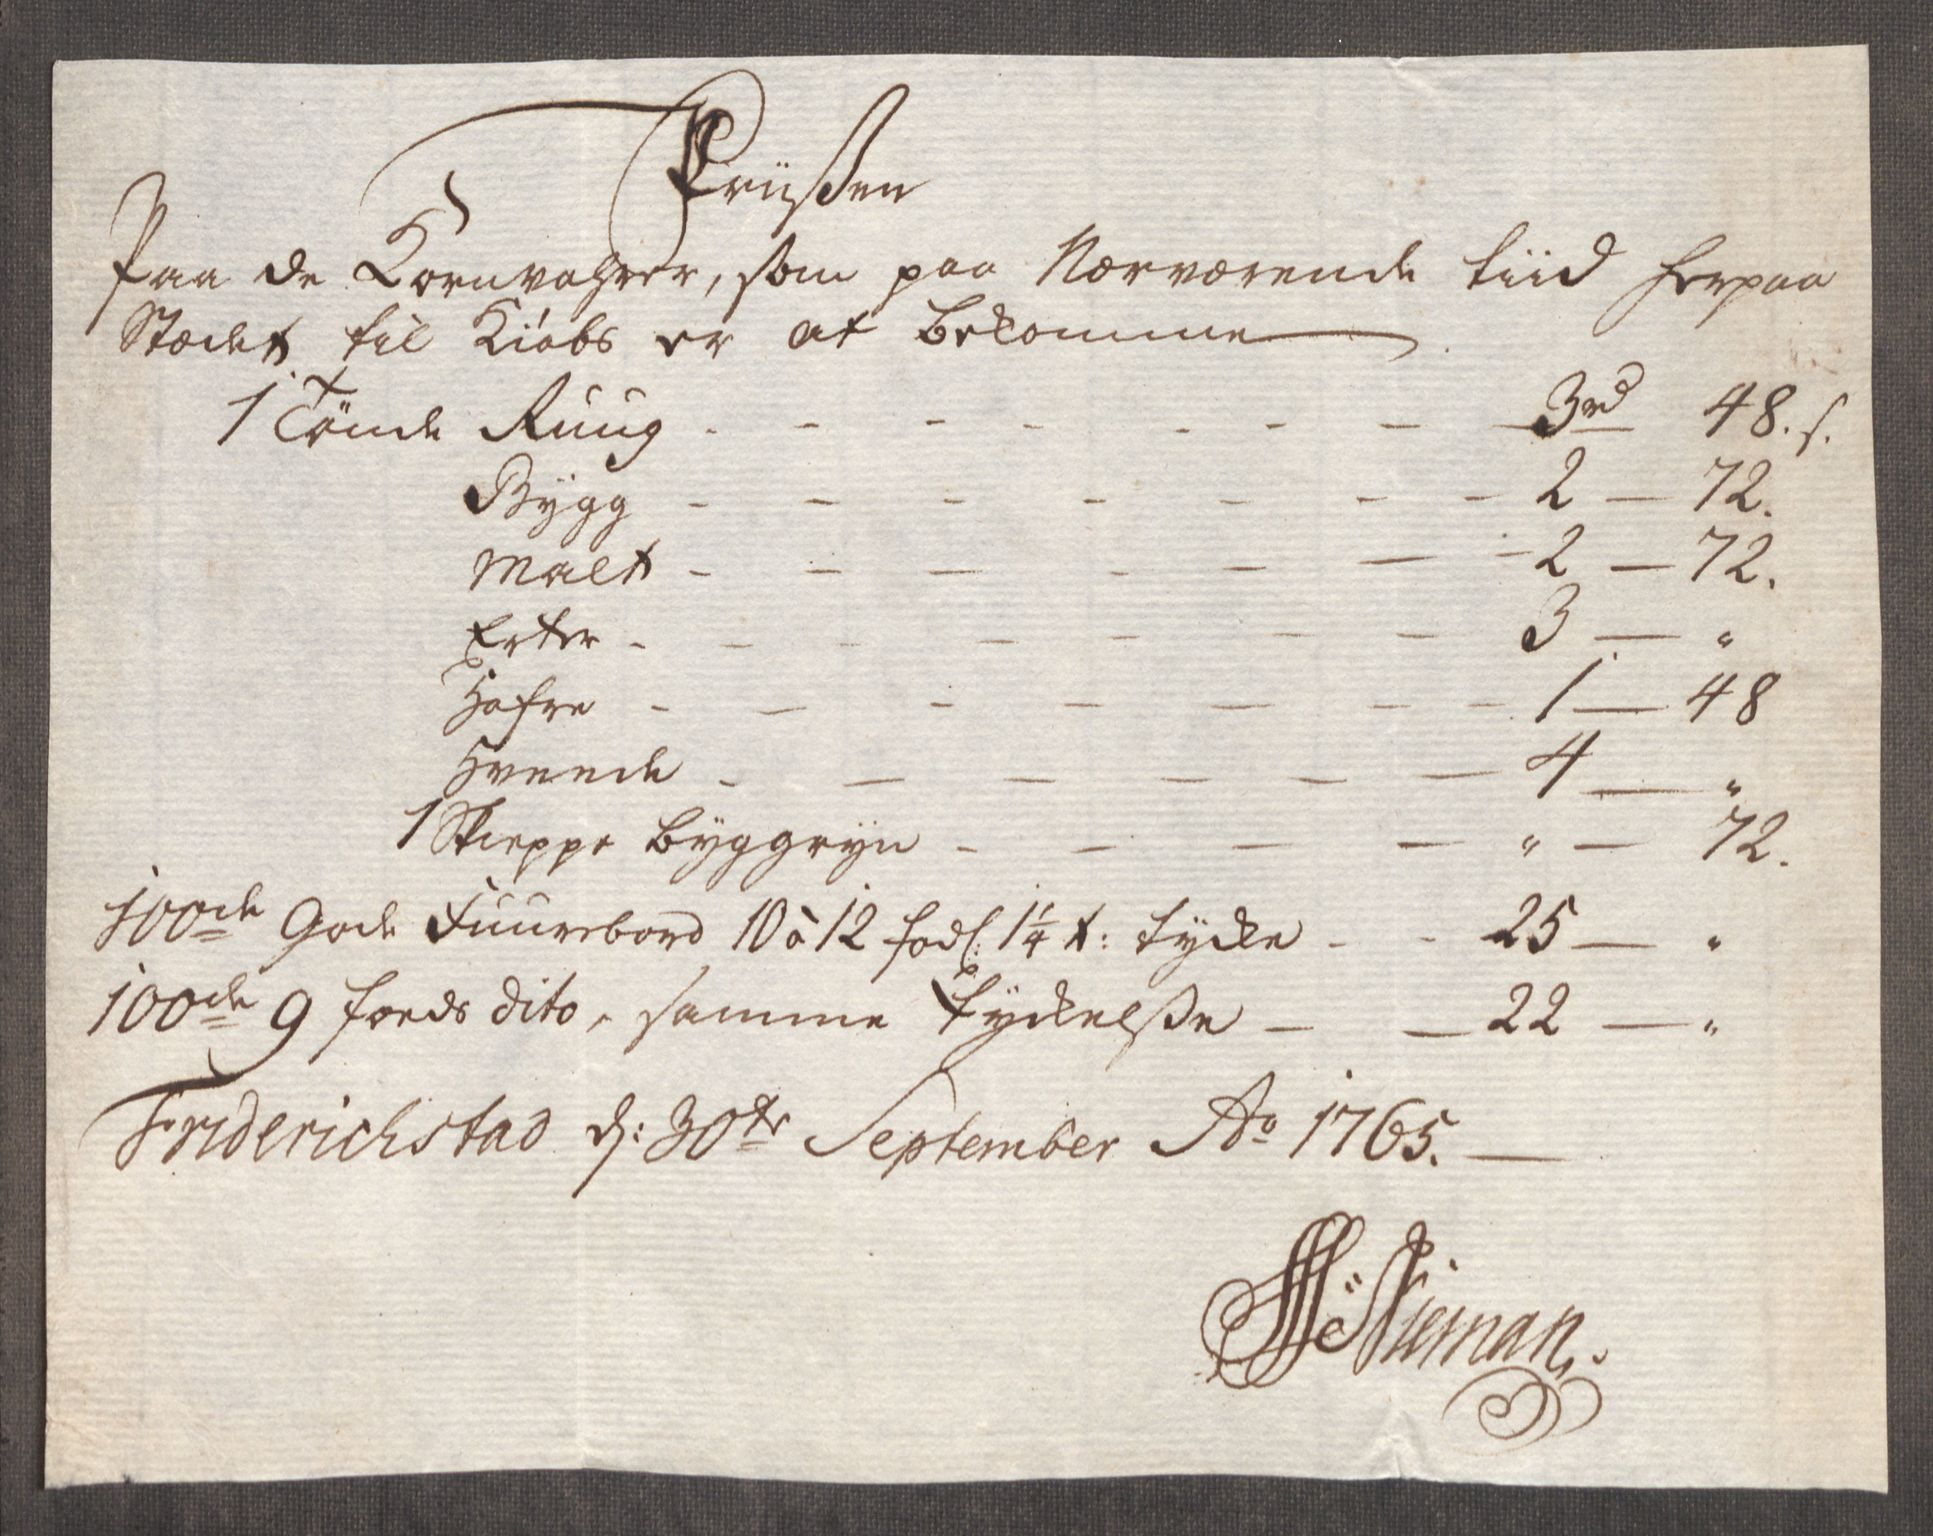 Priißen
Paa de Kornvahrer, som paa Nærværende tiid herpaa
Stædet til Kiøbs er at bekomme
1 Tönde Ruug - - - - - - - 3 rd 48. s.
Bÿgg - - - - - - - 2 — 72.
Malt - - - - - - - 2 — 72.
Erter - - - - - - - 3 — "
Hafre - - - - - - - 1 — 48
Hveede - - - - - - 4 — "
1 Skieppe Bÿggrÿn - - - - " — 72.
100de Gode Fuurebord 10 à 12 fod l: 1 1/4 t: tÿcke - - 25 — "
100de 9 foeds dito, samme tÿckelße - - 22 — "
Friderichstad d: 30te September Ao 1765.
Nieman.